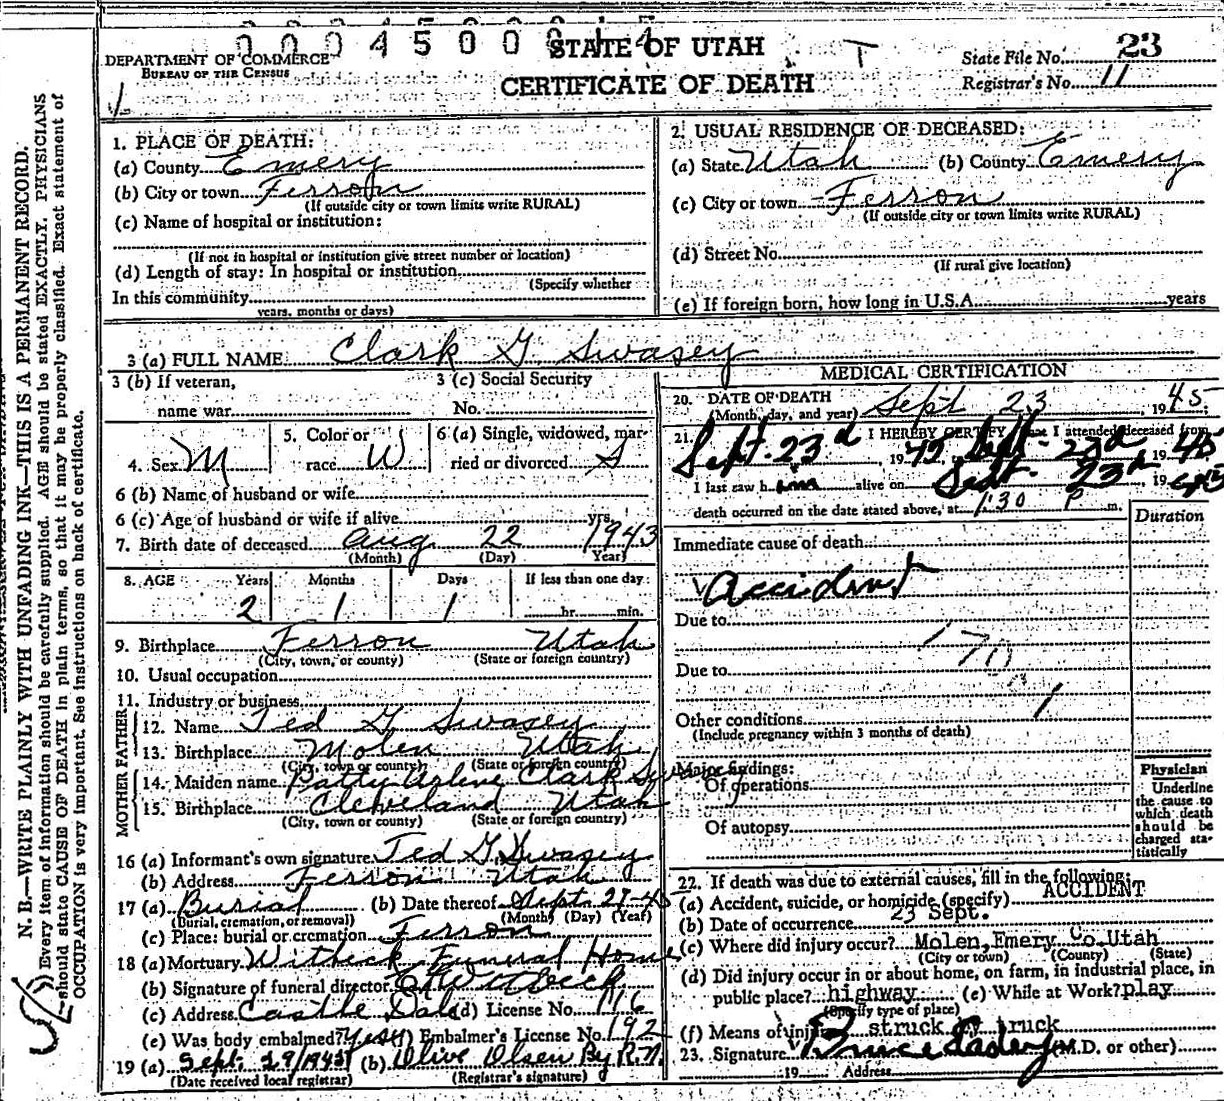 0004500014
STATE OF UTAH
CERTIFICATE OF DEATH
DEPARTMENT OF COMMERCE
BUREAU OF THE CENSUS
T
State File No. 23
Registrar's No. 11
N. B.—WRITE PLAINLY WITH UNFADING INK—THIS IS A PERMANENT RECORD.
Every item of information should be carefully supplied. AGE should be stated EXACTLY. PHYSICIANS
should state CAUSE OF DEATH in plain terms, so that it may be properly classified. Exact statement of
OCCUPATION is very important. See instructions on back of certificate.
1. PLACE OF DEATH:
(a) County Emery
(b) City or town Ferron
(If outside city or town limits write RURAL)
(c) Name of hospital or institution:
(If not in hospital or institution give street number or location)
(d) Length of stay: In hospital or institution
(Specify whether
In this community
years, months or days)
2. USUAL RESIDENCE OF DECEASED:
(a) State Utah (b) County Emery
(c) City or town Ferron
(If outside city or town limits write RURAL)
(d) Street No.
(If rural give location)
(e) If foreign born, how long in U.S.A. years
3 (a) FULL NAME Clark G Swasey
3 (b) If veteran,
name war
3 (c) Social Security
No.
4. Sex M
5. Color or
race W
6 (a) Single, widowed, mar-
ried or divorced S
6 (b) Name of husband or wife
6 (c) Age of husband or wife if alive yrs.
7. Birth date of deceased Aug 22 1943
(Month) (Day) Year)
8. AGE Years Months Days If less than one day:
2 1 1 hr. min.
9. Birthplace Ferron Utah
(City, town, or county) (State or foreign country)
10. Usual occupation
11. Industry or business
FATHER
12. Name Ted G Swasey
13. Birthplace Molen Utah
(City, town or county) (State or foreign country)
MOTHER
14. Maiden name Patty Arlene Clark Swasey
15. Birthplace Cleveland Utah
(City, town or county) (State or foreign country)
16 (a) Informant's own signature Ted G. Swasey
(b) Address Ferron Utah
17 (a) Burial (b) Date thereof Sept 27-45
(Burial, cremation, or removal) (Month) (Day) (Year)
(c) Place: burial or cremation Ferron
18 (a) Mortuary Witbeck Funeral Home
(b) Signature of funeral director Witbeck
(c) Address Castle Dale (d) License No. 116
(e) Was body embalmed? Yes (f) Embalmer's License No. 192
19 (a) Sept. 29/1945 (b) Olive Olsen By R.N.
(Date received local registrar) (Registrar's signature)
MEDICAL CERTIFICATION
20. DATE OF DEATH
(Month, day, and year) Sept 23, 1945;
21. I HEREBY CERTIFY that I attended deceased from
Sept. 23d, 1945 Sept. 23d 1945
I last saw him alive on Sept. 23d, 1945
death occurred on the date stated above, at 1:30 P m.
Duration
Immediate cause of death
Accident
Due to
170
Due to
1
Other conditions
(Include pregnancy within 3 months of death)
Major findings:
Of operations
Of autopsy
Physician
Underline
the cause to
which death
should be
charged sta-
tistically
22. If death was due to external causes, fill in the following:
(a) Accident, suicide, or homicide (specify) ACCIDENT
(b) Date of occurrence 23 Sept.
(c) Where did injury occur? Molen, Emery Co. Utah
(City or town) (County) (State)
(d) Did injury occur in or about home, on farm, in industrial place, in
public place? highway (e) While at Work? play
(Specify type of place)
(f) Means of injury struck by truck
23. Signature Bruce Easley (M.D. or other)
19 Address